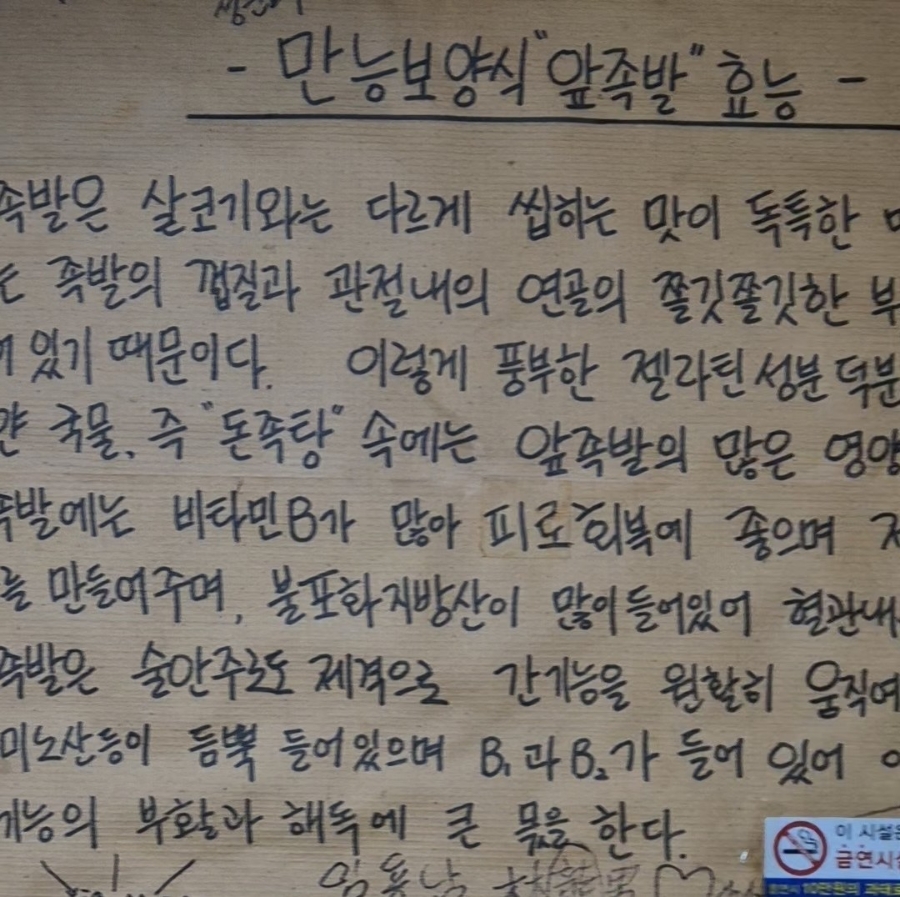 - 만능보양식 "앞족발" 효능 -
족발은 살코기와는 다르게 씹히는 맛이 독특한
는 족발의 껍질과 관절내의 연골의 쫄깃쫄깃한 부
어 있기 때문이다. 이렇게 풍부한 젤라틴 성분 덕분
얀 국물, 즉 "돈족탕" 속에는 앞족발의 많은 영양
족발에는 비타민B가 많아 피로회복에 좋으며
를 만들어주며, 불포화지방산이 많이 들어있어 혈관내
족발은 술안주로도 제격으로 간기능을 원활히 움직여
미노산등이 듬뿍 들어있으며 B₁과 B₂가 들어 있어
기능의 부활과 해독에 큰 몫을 한다.
이 시설은
금연시설
10만원의 과태료